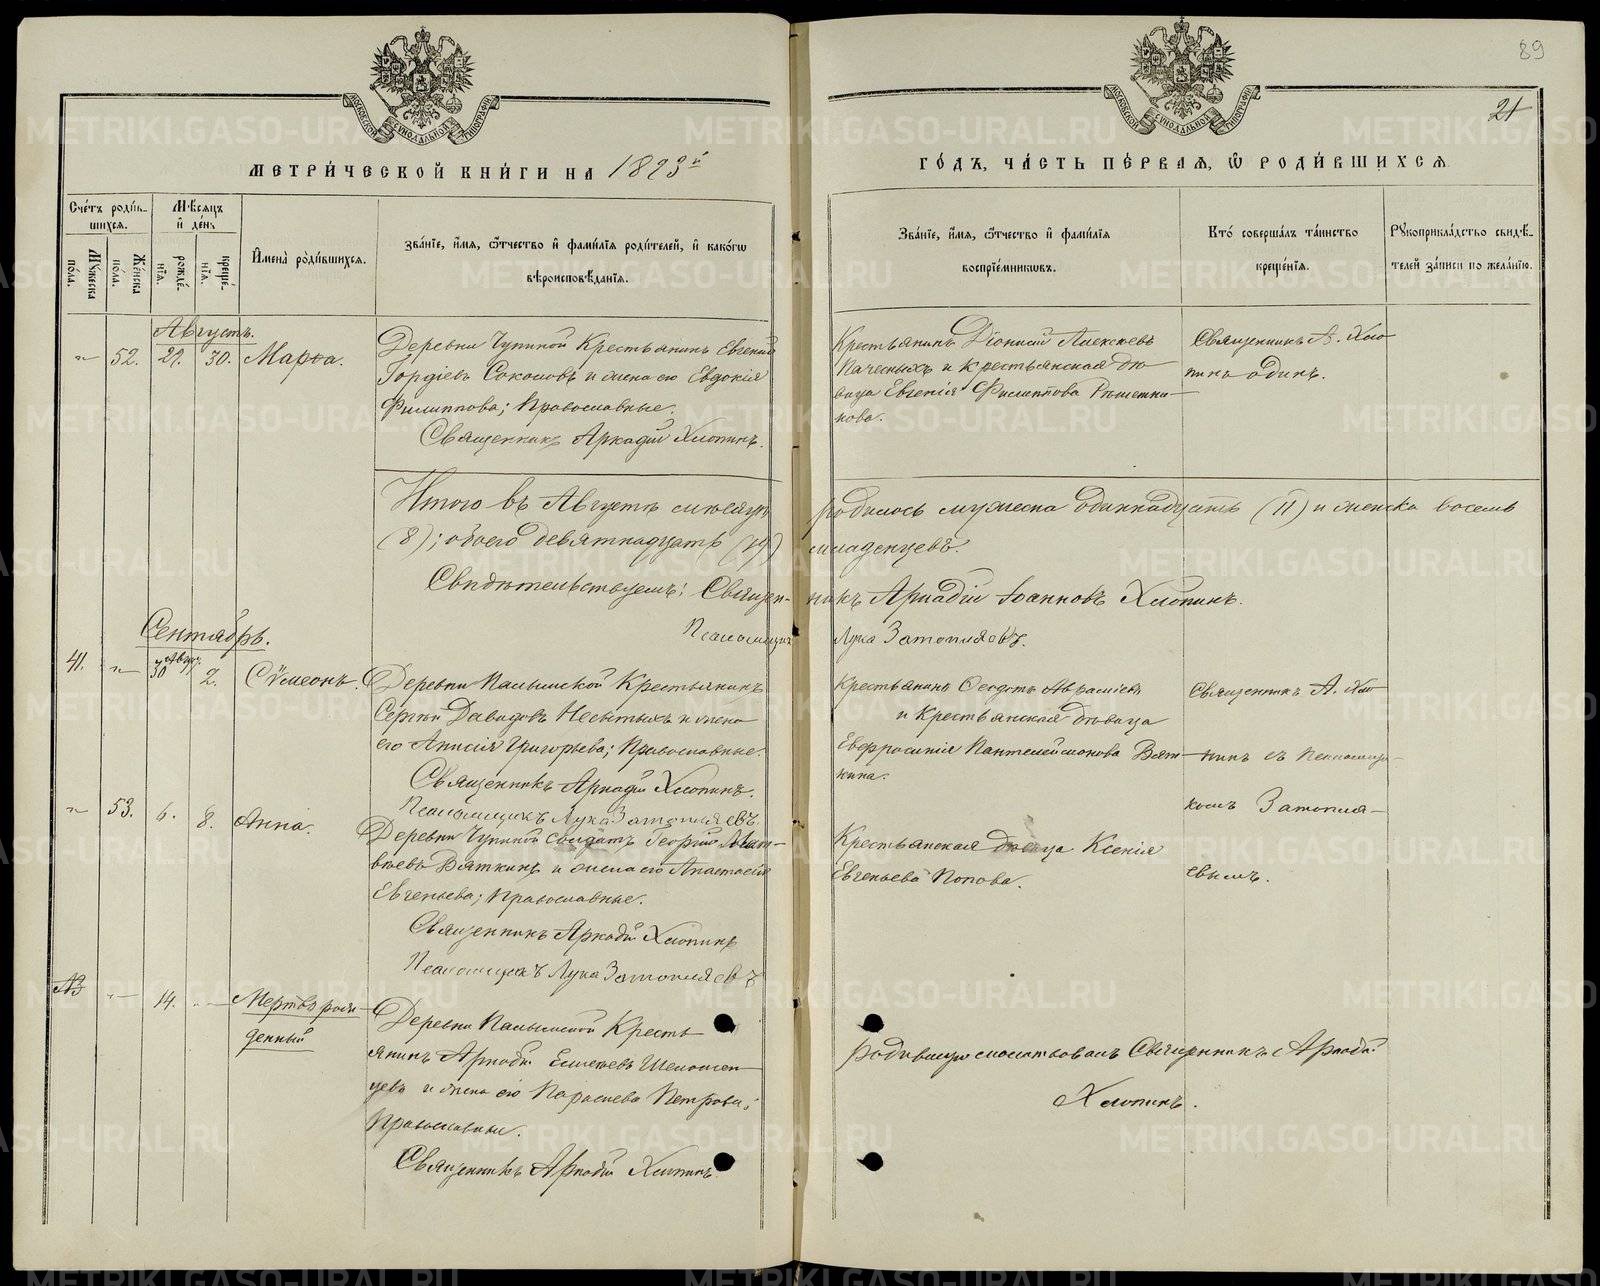 89
21
МОСКОВСКОЙ СѴНОДАЛЬНОЙ ТИПОГРАФІИ
МОСКОВСКОЙ СѴНОДАЛЬНОЙ ТИПОГРАФІИ
МЕТРИ́ЧЕСКОЙ КНИ́ГИ НА 1893й
ГО́ДЪ, ЧА́СТЬ ПЕ́РВАЯ, Ѽ РОДИ́ВШИХСЯ
Сче́тъ роди́в-
шихся.
Му́жеска по́ла.
Же́нска по́ла.
Мѣ́сяцъ
и҆ де́нь
рожде́-
нїя.
креще́-
нїя.
И҆мена̀ роди́вшихся.
Зва́нїе, и҆́мя, ѻ҆́тчество и҆ фами́лїя роди́телей, и҆ како́гѡ
вѣроисповѣ́данїя.
Зва́нїе, и҆́мя, ѻ҆́тчество и҆ фами́лїя
воспрїе́мникѡвъ.
Кто̀ соверша́лъ та́инство
креще́нїя.
Рꙋкоприкла́дство свидѣ́-
телей за́писи по жела́нїю.
Августъ.
„ 52. 21. 30. Марѳа.
Деревни Чупиной Крестьянинъ Евгений
Гордіевъ Соколовъ и жена его Евдокія
Филиппова; Православные.
Священникъ Аркадій Хлопинъ.
Крестьянинъ Діонисій Алексѣевъ
Паченыхъ и крестьянская дѣ
вица Евгенія Филиппова Рѣшетни-
кова.
Священникъ А. Хло
пинъ одинъ.
Итого въ Августѣ мѣсяцѣ родилось мужеска одиннадцать (11) и женска восемь
(8); обоего девятнадцать (19) младенцевъ.
Свидѣтельствуемъ: Священ-никъ Аркадій Іоанновъ Хлопинъ.
Псаломщикъ Лука Затопляевъ.
Сентябрь.
41. „ Авгус. 30 2. Сѵмеонъ.
Деревни Камышской Крестьянинъ
Сергѣй Давидовъ Несытыхъ и жена
его Анисія Григорьева; Православные.
Священникъ Аркадій Хлопинъ.
Псаломщикъ Лука Затопляевъ.
Крестьянинъ Ѳеодотъ
и Крестьянская дѣвица
Евфросинія Пантелеймонова Вят-
кина.
Священникъ А. Хло
пинъ съ Псаломщи-
комъ Затопля-
евымъ.
„ 53. 6. 8. Анна.
Деревни Чупиной Солдатъ Георгій Мат-
вѣевъ Вяткинъ и жена его Анастасія
Евгеньева; Православные.
Священникъ Аркадій Хлопинъ
Псаломщикъ Лука Затопляевъ
Крестьянская дѣвица Ксенія
Евгеньева Попова.
„ 14. „ Мертворож-
денный
Деревни Камышской Кресть
янинъ Аркадій
и жена его Параскева Петрова;
Православные.
Священникъ Аркадій Хлопинъ.
Родившую молитвовалъ Священникъ Аркадій
Хлопинъ.
METRIKI.GASO-URAL.RU